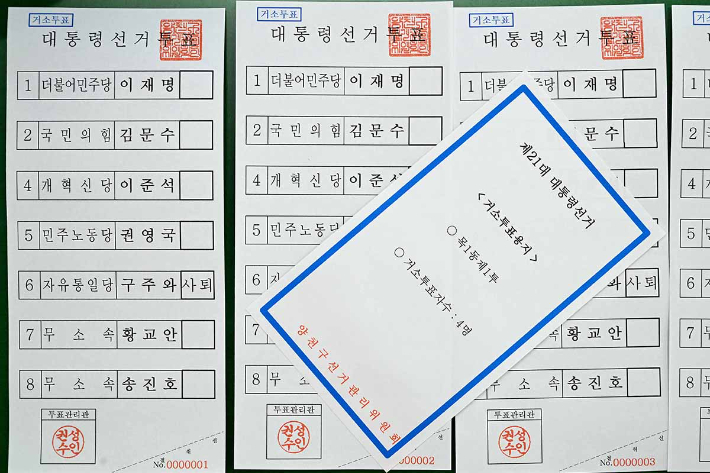 거소투표
대통령선거투표
1 더불어민주당 이재명
2 국민의힘 김문수
4 개혁신당 이준석
5 민주노동당 권영국
6 자유통일당 구주와 사퇴
7 무소속 황교안
8 무소속 송진호
투표관리관
권성수인
No.0000001
거소투표
대통령선거투표
1 더불어민주당 이재명
2 국민의힘 김문수
4 개혁신당 이준석
5 민주노동당
6
7
8
투표관리관
권성수인
제21대 대통령선거
< 거소투표용지 >
○ 목1동제1투
○ 거소투표자수 : 4명
양천구선거관리위원회
거소투표
대통령선거투표
1 이재명
문수
사퇴
황교안
송진호
투표관리관
권성수인
No.0000003
1
2
4
5
6
7
8